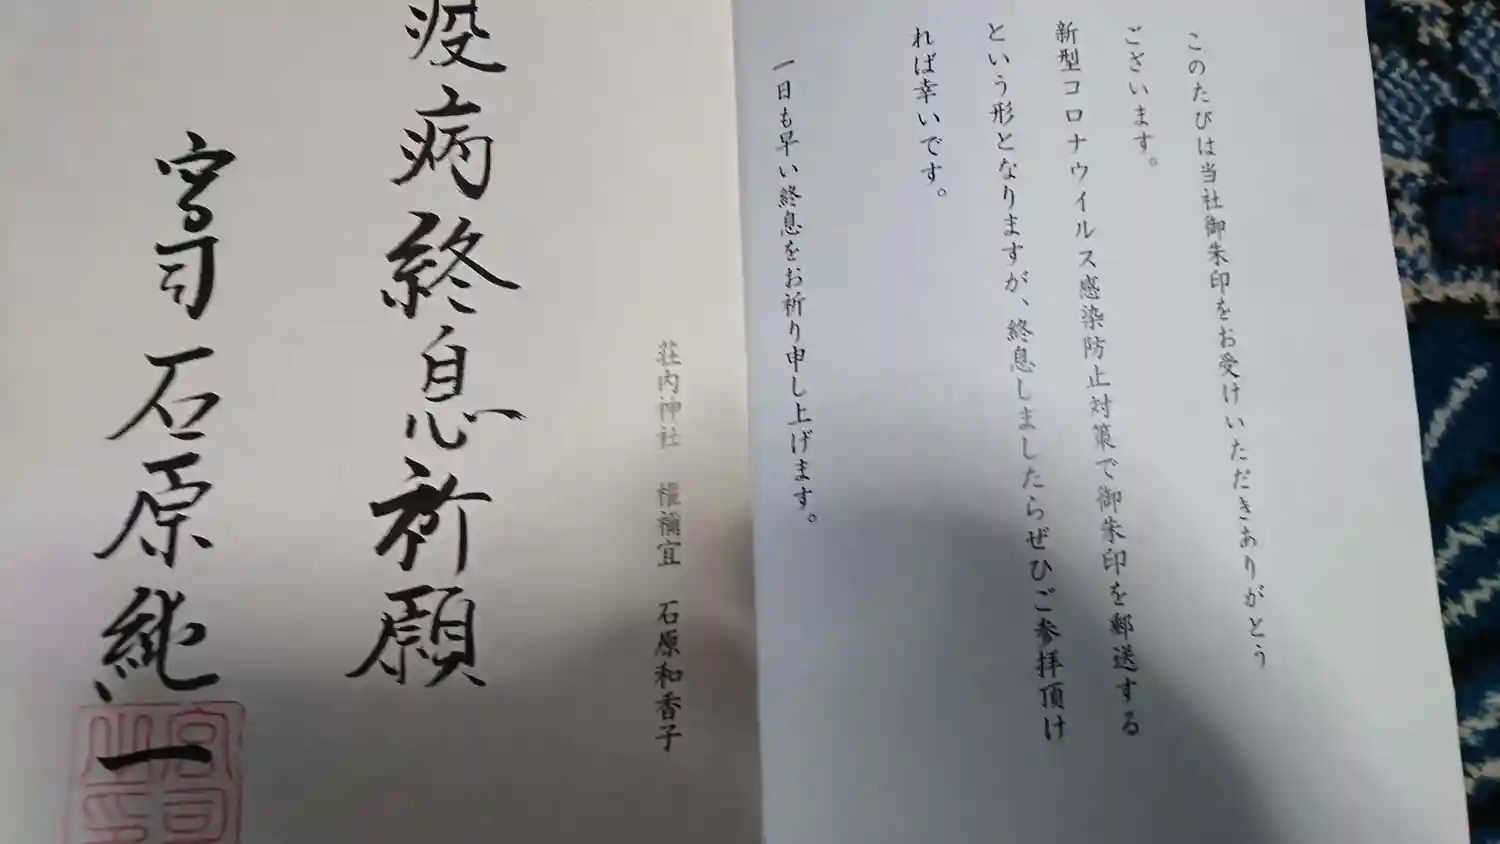 このたびは当社御朱印をお受けいただきありがとう
ございます。
新型コロナウイルス感染防止対策で御朱印を郵送する
という形となりますが、終息しましたらぜひご参拝頂け
れば幸いです。
一日も早い終息をお祈り申し上げます。
荘内神社 権禰宜 石原和香子
疫病終息祈願
宮司 石原純一
宮司之印